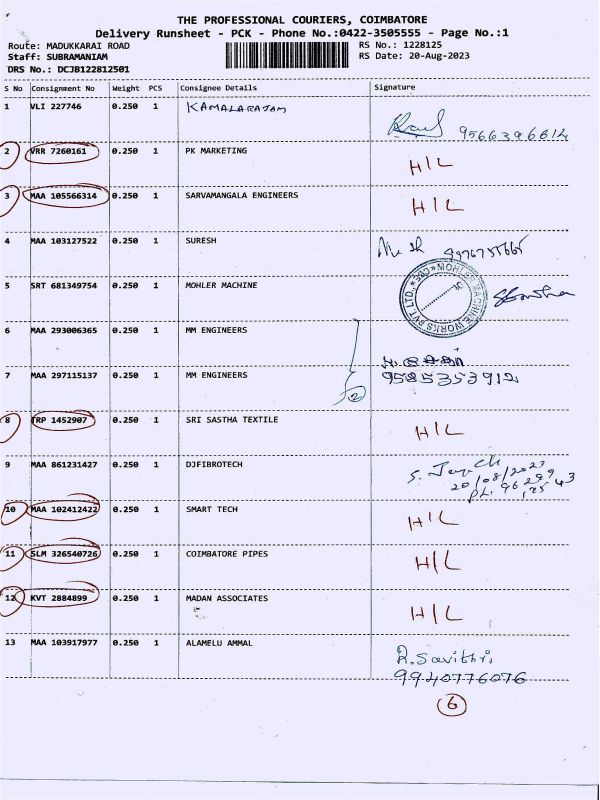 THE PROFESSIONAL COURIERS, COIMBATORE
Delivery Runsheet - PCK - Phone No.:0422-3505555 - Page No.:1
Route: MADUKKARAI ROAD RS No.: 1228125
Staff: SUBRAMANIAM RS Date: 20-Aug-2023
DRS No.: DCJB122812501
S No Consignment No Weight PCS Consignee Details Signature
1 VLI 227746 0.250 1 KAMALARAJAM
9566396812
2 VRR 7260161 0.250 1 PK MARKETING H/L
3 MAA 105566314 0.250 1 SARVAMANGALA ENGINEERS H/L
4 MAA 103127522 0.250 1 SURESH
5 SRT 681349754 0.250 1 MOHLER MACHINE MOHLER MACHINE WORKS PVT LTD.,
6 MAA 293006365 0.250 1 MM ENGINEERS
7 MAA 297115137 0.250 1 MM ENGINEERS 9585353912
2
8 TRP 1452907 0.250 1 SRI SASTHA TEXTILE H/L
9 MAA 861231427 0.250 1 DJFIBROTECH
20/08/2023
10 MAA 102412422 0.250 1 SMART TECH H/L
11 SLM 326540726 0.250 1 COIMBATORE PIPES H/L
12 KVT 2884899 0.250 1 MADAN ASSOCIATES H/L
13 MAA 103917977 0.250 1 ALAMELU AMMAL R. Savithri
9940776076
6